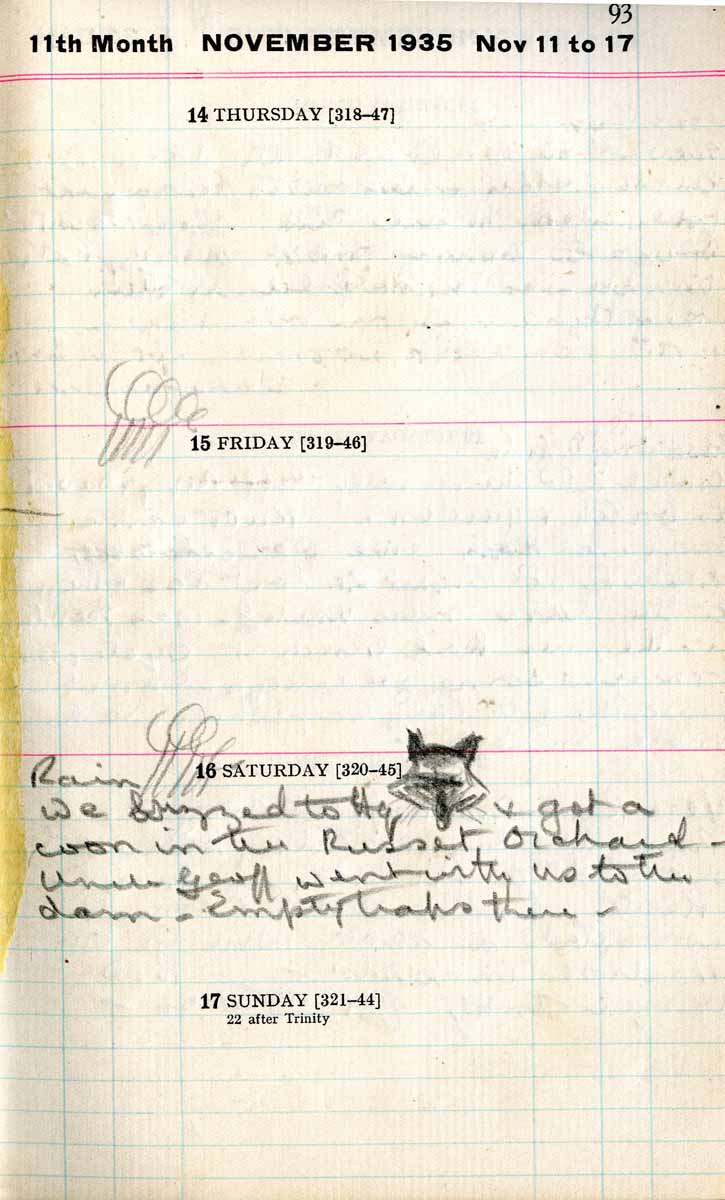 93
11th Month NOVEMBER 1935 Nov 11 to 17
14 THURSDAY [318–47]
15 FRIDAY [319–46]
16 SATURDAY [320–45]
Rain
We buzzed to Hy & got a
coon in the Russet Orchard –
Uncle Geoff went with us to the
dam – Empty traps there –
17 SUNDAY [321–44]
22 after Trinity